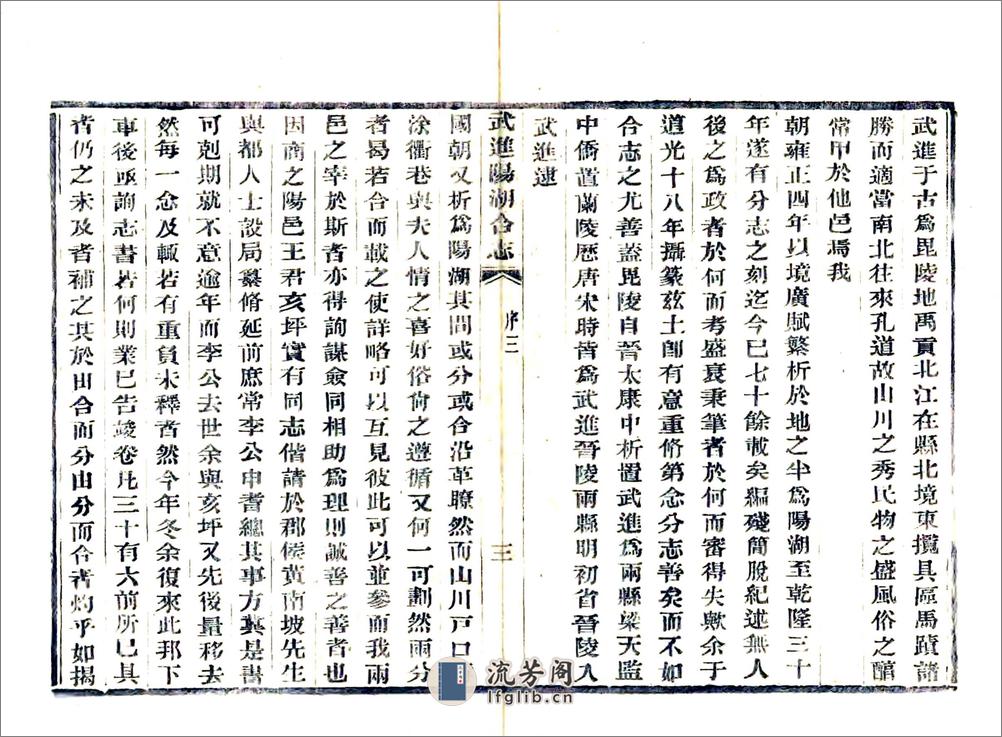 武進于古爲毘陵地禹貢北江在縣北境東攬具區馬蹟諸
勝而適當南北往來孔道故山川之秀民物之盛風俗之醇
常甲於他邑焉我
朝雍正四年以境廣賦繁析於地之半爲陽湖至乾隆三十
年遂有分志之刻迄今已七十餘載矣編殘簡脫紀述無人
後之爲政者於何而考盛衰秉筆者於何而審得失歟余于
道光十八年攝篆茲土卽有意重脩第念分志善矣而不如
合志之尤善蓋毘陵自晉太康中析置武進爲兩縣梁天監
中僑置蘭陵歷唐宋時皆爲武進晉陵兩縣明初省晉陵入
武進逮
武進陽湖合志
序三
三
國朝又析爲陽湖其間或分或合沿革瞭然而山川戸口
涂衢巷與夫人情之喜好俗尙之遵循又何一可劃然兩分
者曷若合而載之使詳略可以互見彼此可以並參而我兩
邑之宰於斯者亦得詢謀僉同相助爲理則誠善之善者也
因商之陽邑王君亥坪實有同志偕請於郡侯黃南坡先生
與都人士設局纂脩延前庶常李公申耆總其事方冀是書
可剋期就不意逾年而李公去世余與亥坪又先後量移去
然每一念及輒若有重負未釋者然今年冬余復來此邦下
車後亟詢志書若何則業已告竣卷凡三十有六前所已具
者仍之未及者補之其於由合而分由分而合者灼乎如揭
流芳阁
lfglib.cn